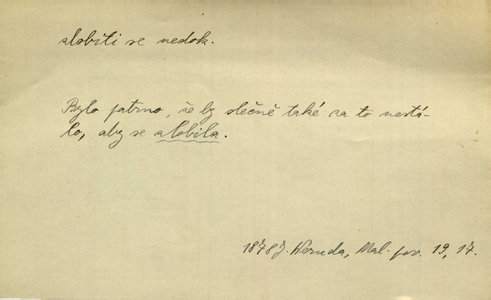 zlobiti se nedok.
Bylo patrno, že by slečně také za to nestá-
lo, aby se zlobila.
1878 J. Neruda, Mal. pov. 19, 17.